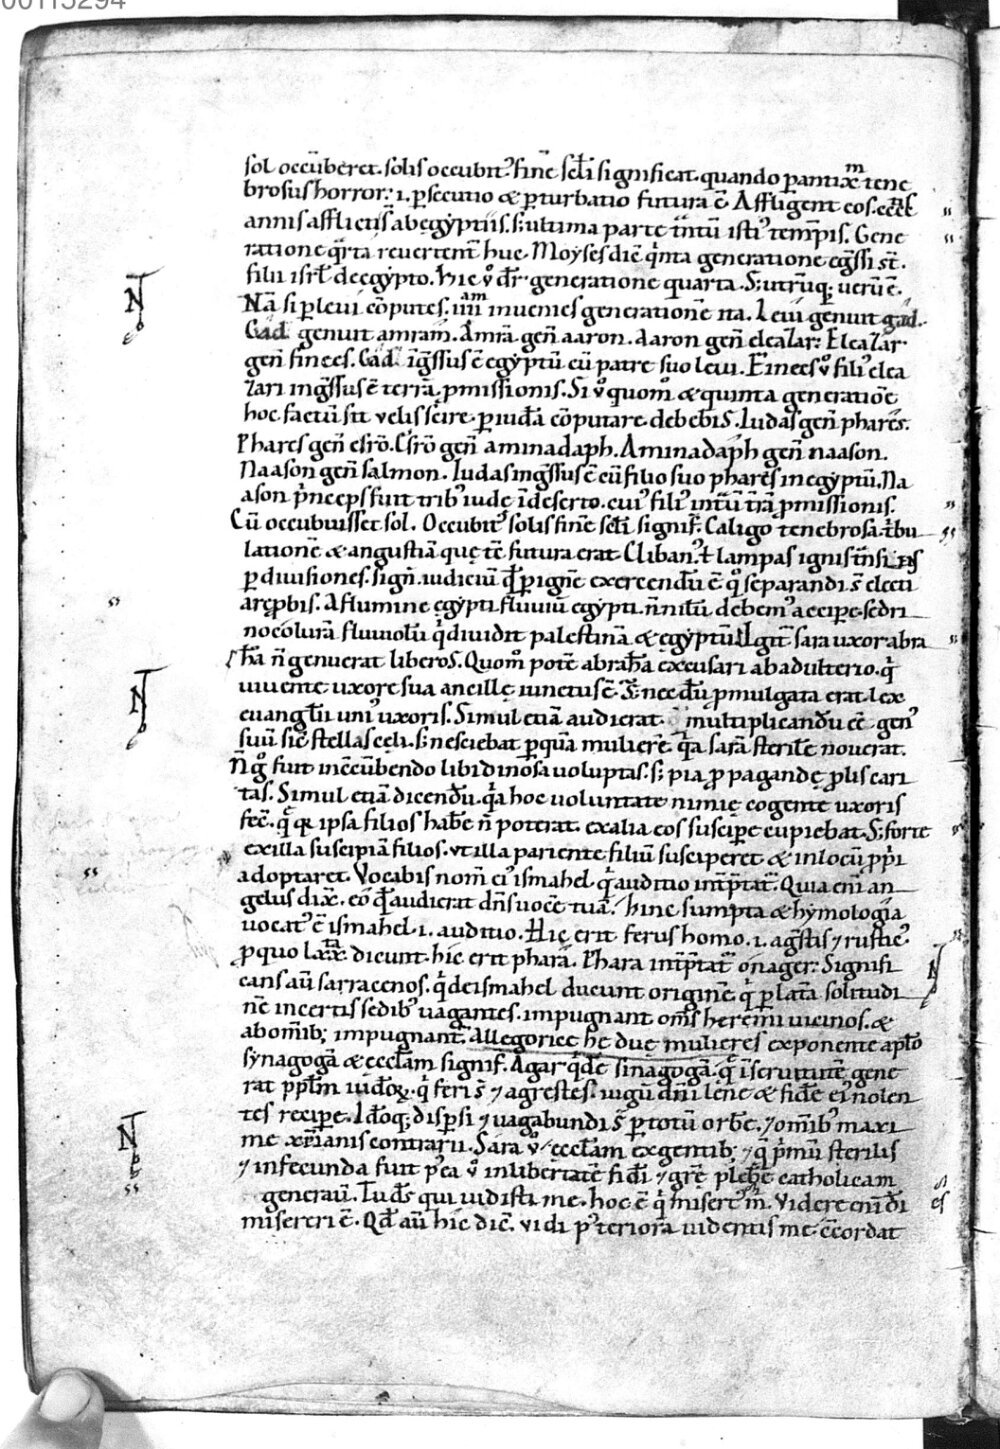 00115294
sol occūberet. solis occubitꝰ finē sc̄li significat. quando ꝑ antix̄pm tene
brosus horror: .i. ꝑsecutio & ꝑturbatio futura ē Affligent eos. cccc
annis afflictis ab egyptiis. s; ultima parte tm̄tū istiꝰ temꝑis. Gene
ratione qͣrta reuertent̄ huc. Moyses dic̄ qͥnta generatione egͤssi st̄.
filii isrl̄ de egypto. hic ṽ dr̄ generatione quarta. S; utrūq; uerū ē.
Nā si ꝑ leui cōputes. iiii am inuenies generationē ita. Leui genuit gad.
Gad genuit amram. Amrā gen̄ aaron. Aaron gen̄ eleazar: Eleazar
gen̄ finees. Gad īgͤssus ē egyptū cū patre suo leui. Finees ṽ filiꝰ elea
zari ingͤssus ē terrā ꝓmissionis. Si ṽ quom̄ & quinta generatiōe
hoc factū sit uelis scire. ꝑ iudā cōputare debebis. Iudas gen̄ phares.
Phares gen̄ esrō. Esrō gen̄ aminadaph. Aminadaph gen̄ naason.
Naason gen̄ salmon. Iudas ingͤssus ē cū filio suo phares in egyptū. Na
ason pͥnceps fuit tribꝰ iude ī deserto. cuiꝰ filiꝰ int̄ū tr̄ā ꝓmissionis.
Cū occubuisset sol. Occubitꝰ solis finē sc̄li signif̄. Caligo tenebrosa. tͥbu
lationē & angustiā quę tc̄ futura erat Clibanꝰ ł lampas ignis tͣnsiens
ꝑ diuisiones. sign̄. iudiciū qd̄ ꝑ ignē exercendū ē qͦ separandi st̄ electi
a reꝓbis. A flumine egypti fluuiū egypti. n̄ nilū debemꝰ accipe. sed ri
nocolurā fluuiolū qͥ diuidit palestinā & egyptū. Igit̄ sara uxor abra
hā n̄ genuerat liberos. Quom̄ potē abrahā excusari ab adulterio. qͥ
uiuente uxore sua ancillę iunctus ē. S; nec dū ꝓmulgata erat lex
euangl̄ii uniꝰ uxoris. Simul etiā audierat multiplicandū ēē genꝰ
suū sic̄ stellas celi. s; nesciebat ꝑ quā mulierē qͥa sarā sterilē nouerat.
N̄ gͦ fuit in c̄cūbendo libidinosa uoluptas. s; pia ꝓpagandę ꝓlis cari
tas. Simul etiā dicendū. qͥa hoc uoluntate nimię cogente uxoris
fec̄. qͣ qꝛ ipsa filios habē n̄ poterat. ex alia eos suscipe cupiebat. S; forte
ex illa suscipiā filios. ut illa pariente filiū susciperet & in locū ꝓpͥ
adoptaret. Vocabis nom̄ eiꝰ ismahel qͥ auditio int̄p̄tat̄. Quia eni an
gelus dix̄. eō qd̄ audierat dn̄s uocē tuā. hinc sumpta & hymologia
uocatꝰ ē ismahel .i. auditio. Hic erit ferus homo .i. agͤstis ⁊ rusticꝰ
ꝓ quo lxx. dicunt. hic erit pharā. Phara int̄p̄tat̄ onager: Signifi
cans aū sarracenos. qͥ de ismahel ducunt originē. qͥ ꝑ latā solitudi
nē incertis sedibꝰ uagantes. impugnant om̄s heremi uicinos. &
ab om̄ib; impugnant̄. Allegorice hę duę mulieres exponente aplō
synagogā & eccl̄am signif̄. Agar qͥdē sinagogā. qͣ ī seruitutē gene
rat ppl̄m iudōꝝ. qͥ feri s̄ ⁊ agrestes. iugū dn̄i lene & fidē eiꝰ nolen
tes recipe. Idōq; disꝑsi ⁊ uagabundi s̄ ꝑ totū orbē. ⁊ om̄ibꝰ maxi
me xp̄ianis contrarii. Sara ṽ eccl̄am ex gentib; ⁊ q̄ pͥmū sterilis
⁊ infecunda fuit pꝰea ṽ in libertatē fidi ⁊ grē plebē catholicam
generaū. Tu ds̄ qui uidisti me. hoc ē qͥ misertꝰ m̄. Videre eni dī
misereri ē. Qd̄ aū hic dic̄. uidi pꝰteriora uidentis me c̄cordat